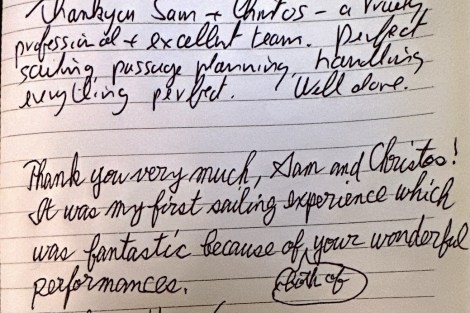 Thankyou Sam + Christos – a truly
professional + excellent team. Perfect
sailing, passage planning, handling
everything perfect. Well done.
Thank you very much, Sam and Christos!
It was my first sailing experience which
was fantastic because of your wonderful
performances. Both of